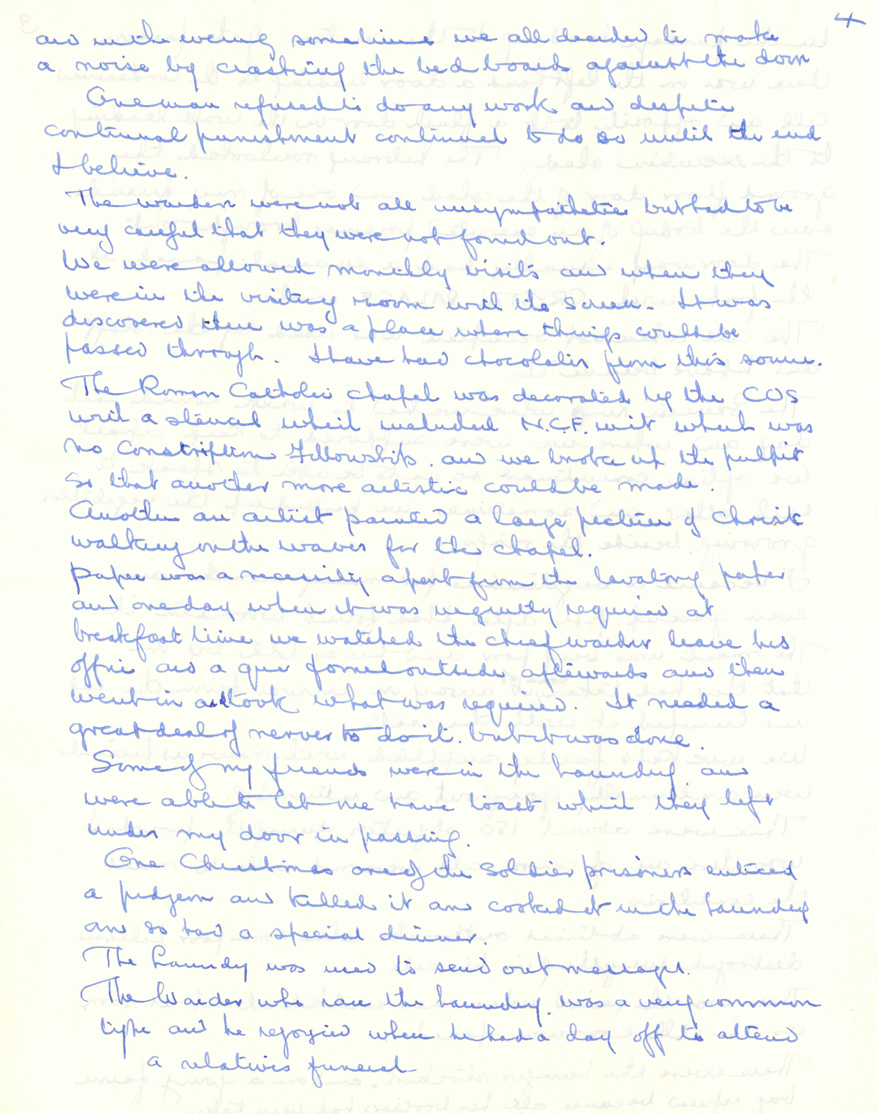 4
and in the evening sometimes we all decided to make
a noise by crashing the bed boards against the door
One man refused to do any work and despite
continual punishment continued to do so until the end
I believe.
The warders were not all unsympathetic but had to be
very careful that they were not found out.
We were allowed monthly visits and when they
were in the visiting room with the screen. It was
discovered there was a place where things could be
passed through. I have had chocolate from this source.
The Roman Catholic chapel was decorated by the COS
with a stencil which included N.C.F. in it which was
No Conscription Fellowship. and we broke up the pulpit
so that another more artistic could be made.
Another an artist painted a large picture of Christ
walking on the waves for the chapel.
Paper was a necessity apart from the lavatory paper
and one day when it was urgently required at
breakfast time we watched the chief warder leave his
office and a queue formed outside afterwards and then
went in and took what was required. It needed a
great deal of nerves to do it. but it was done.
Some of my friends were in the laundry and
were able to let me have toast which they left
under my door in passing.
One Christmas one of the soldier prisoners enticed
a pidgeon and killed it and cooked it in the laundry
and so had a special dinner.
The Laundry was used to send out messages.
The Warder who ran the laundry was a very common
type and he rejoyced when he had a day off to attend
a relatives funeral